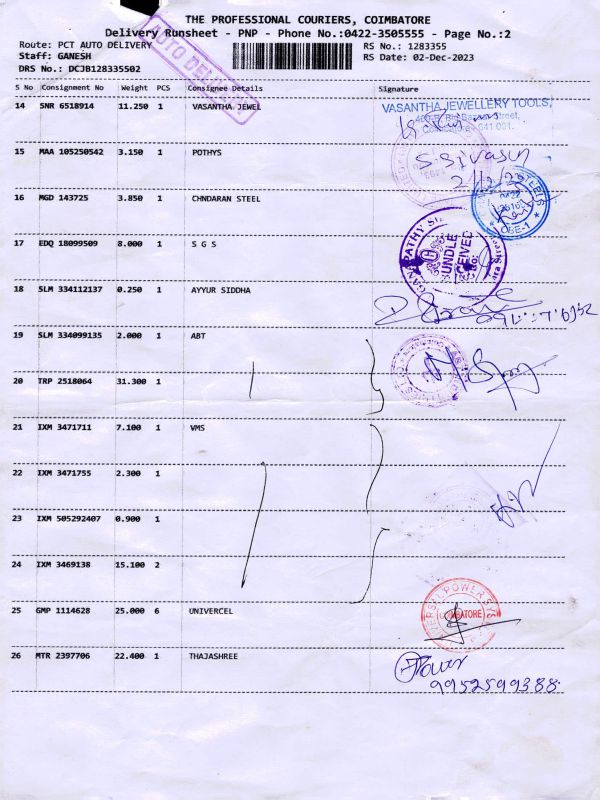 THE PROFESSIONAL COURIERS, COIMBATORE
Delivery Runsheet - PNP - Phone No.:0422-3505555 - Page No.:2
Route: PCT AUTO DELIVERY RS No.: 1283355
Staff: GANESH RS Date: 02-Dec-2023
DRS No.: DCJB128335502
AUTO DELI
S No Consignment No Weight PCS Consignee Details Signature
14 SNR 6518914 11.250 1 VASANTHA JEWEL
VASANTHA JEWELLERY TOOLS,
Street,
641 001.
15 MAA 105250542 3.150 1 POTHYS
S. Sivasun
16 MGD 143725 3.850 1 CHNDARAN STEEL
CBE-1
17 EDQ 18099509 8.000 1 S G S
GANAPATHY
BUNDLE
18 SLM 334112137 0.250 1 AYYUR SIDDHA
19 SLM 334099135 2.000 1 ABT
20 TRP 2518064 31.300 1
21 IXM 3471711 7.100 1 VMS
22 IXM 3471755 2.300 1
23 IXM 505292407 0.900 1
24 IXM 3469138 15.100 2
25 GMP 1114628 25.000 6 UNIVERCEL
POWER
26 MTR 2397706 22.400 1 THAJASHREE
9952599388